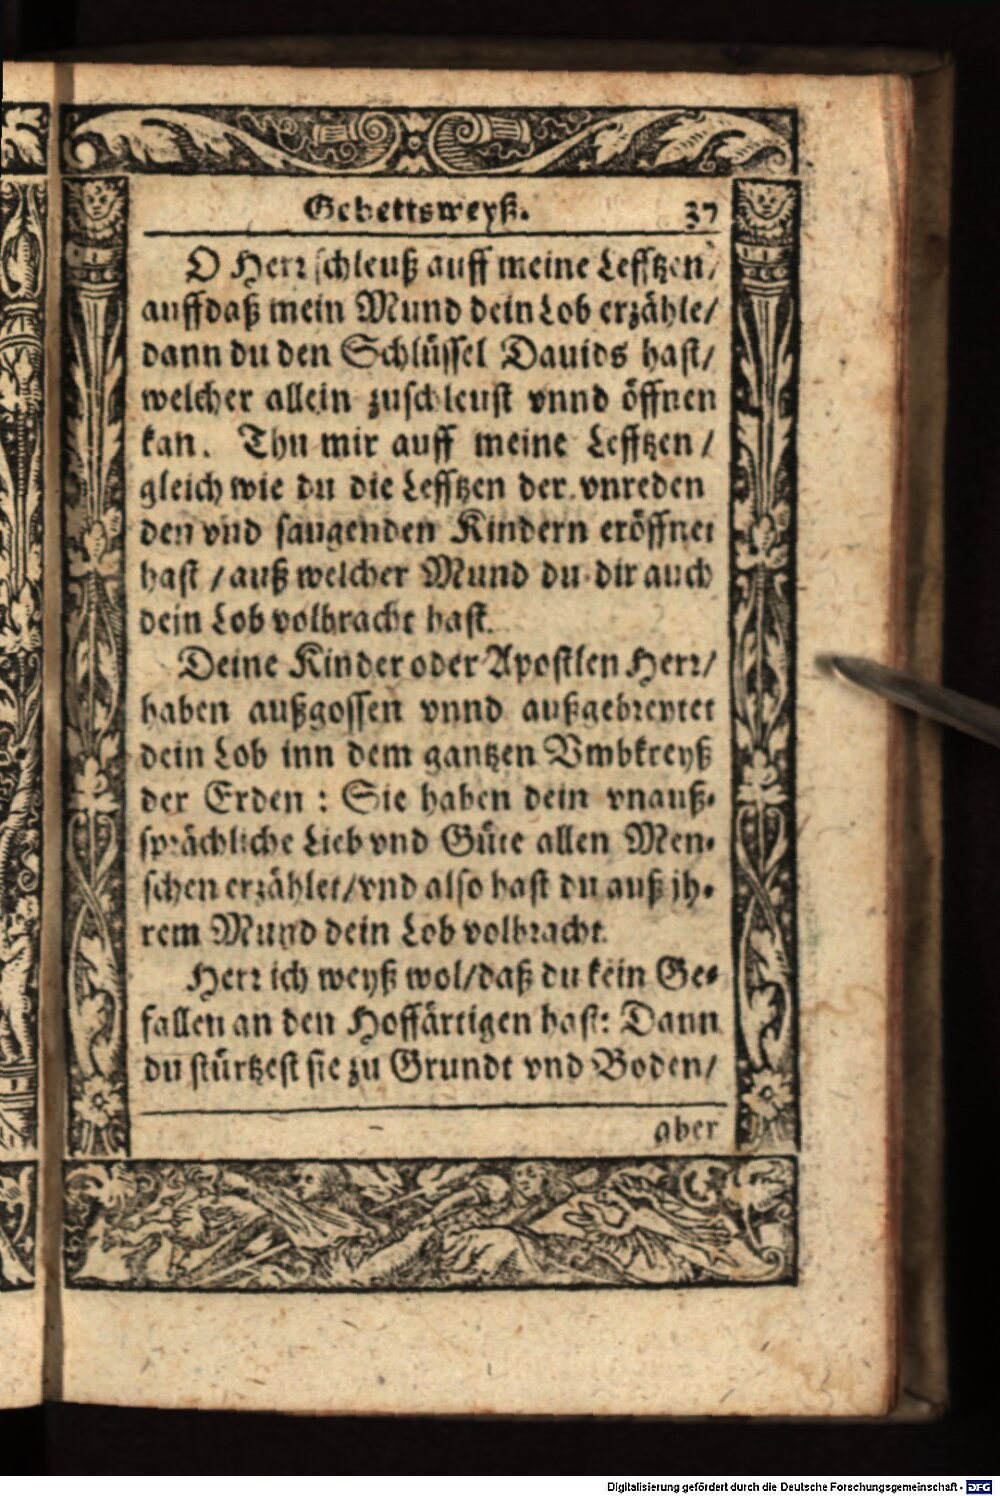 Gebettsweyß. 37
O Herr schleuß auff meine Lefftzen/
auffdaß mein Mund dein Lob erzähle/
dann du den Schlüssel Dauids hast/
welcher allein zuschleust vnnd öffnen
kan. Thu mir auff meine Lefftzen/
gleich wie du die Lefftzen der vnreden
den vnd saugenden Kindern eröffnet
hast/ auß welcher Mund du dir auch
dein Lob volbracht hast.
Deine Kinder oder Apostlen Herr/
haben außgossen vnnd außgebreytet
dein Lob inn dem gantzen Vmbkreyß
der Erden: Sie haben dein vnauß-
sprächliche Lieb vnd Güte allen Men-
schen erzählet/ vnd also hast du auß jh-
rem Mund dein Lob volbracht.
Herr ich weyß wol/ daß du kein Ge-
fallen an den Hoffärtigen hast: Dann
du stürtzest sie zu Grundt vnd Boden/
aber
Digitalisierung gefördert durch die Deutsche Forschungsgemeinschaft - DFG